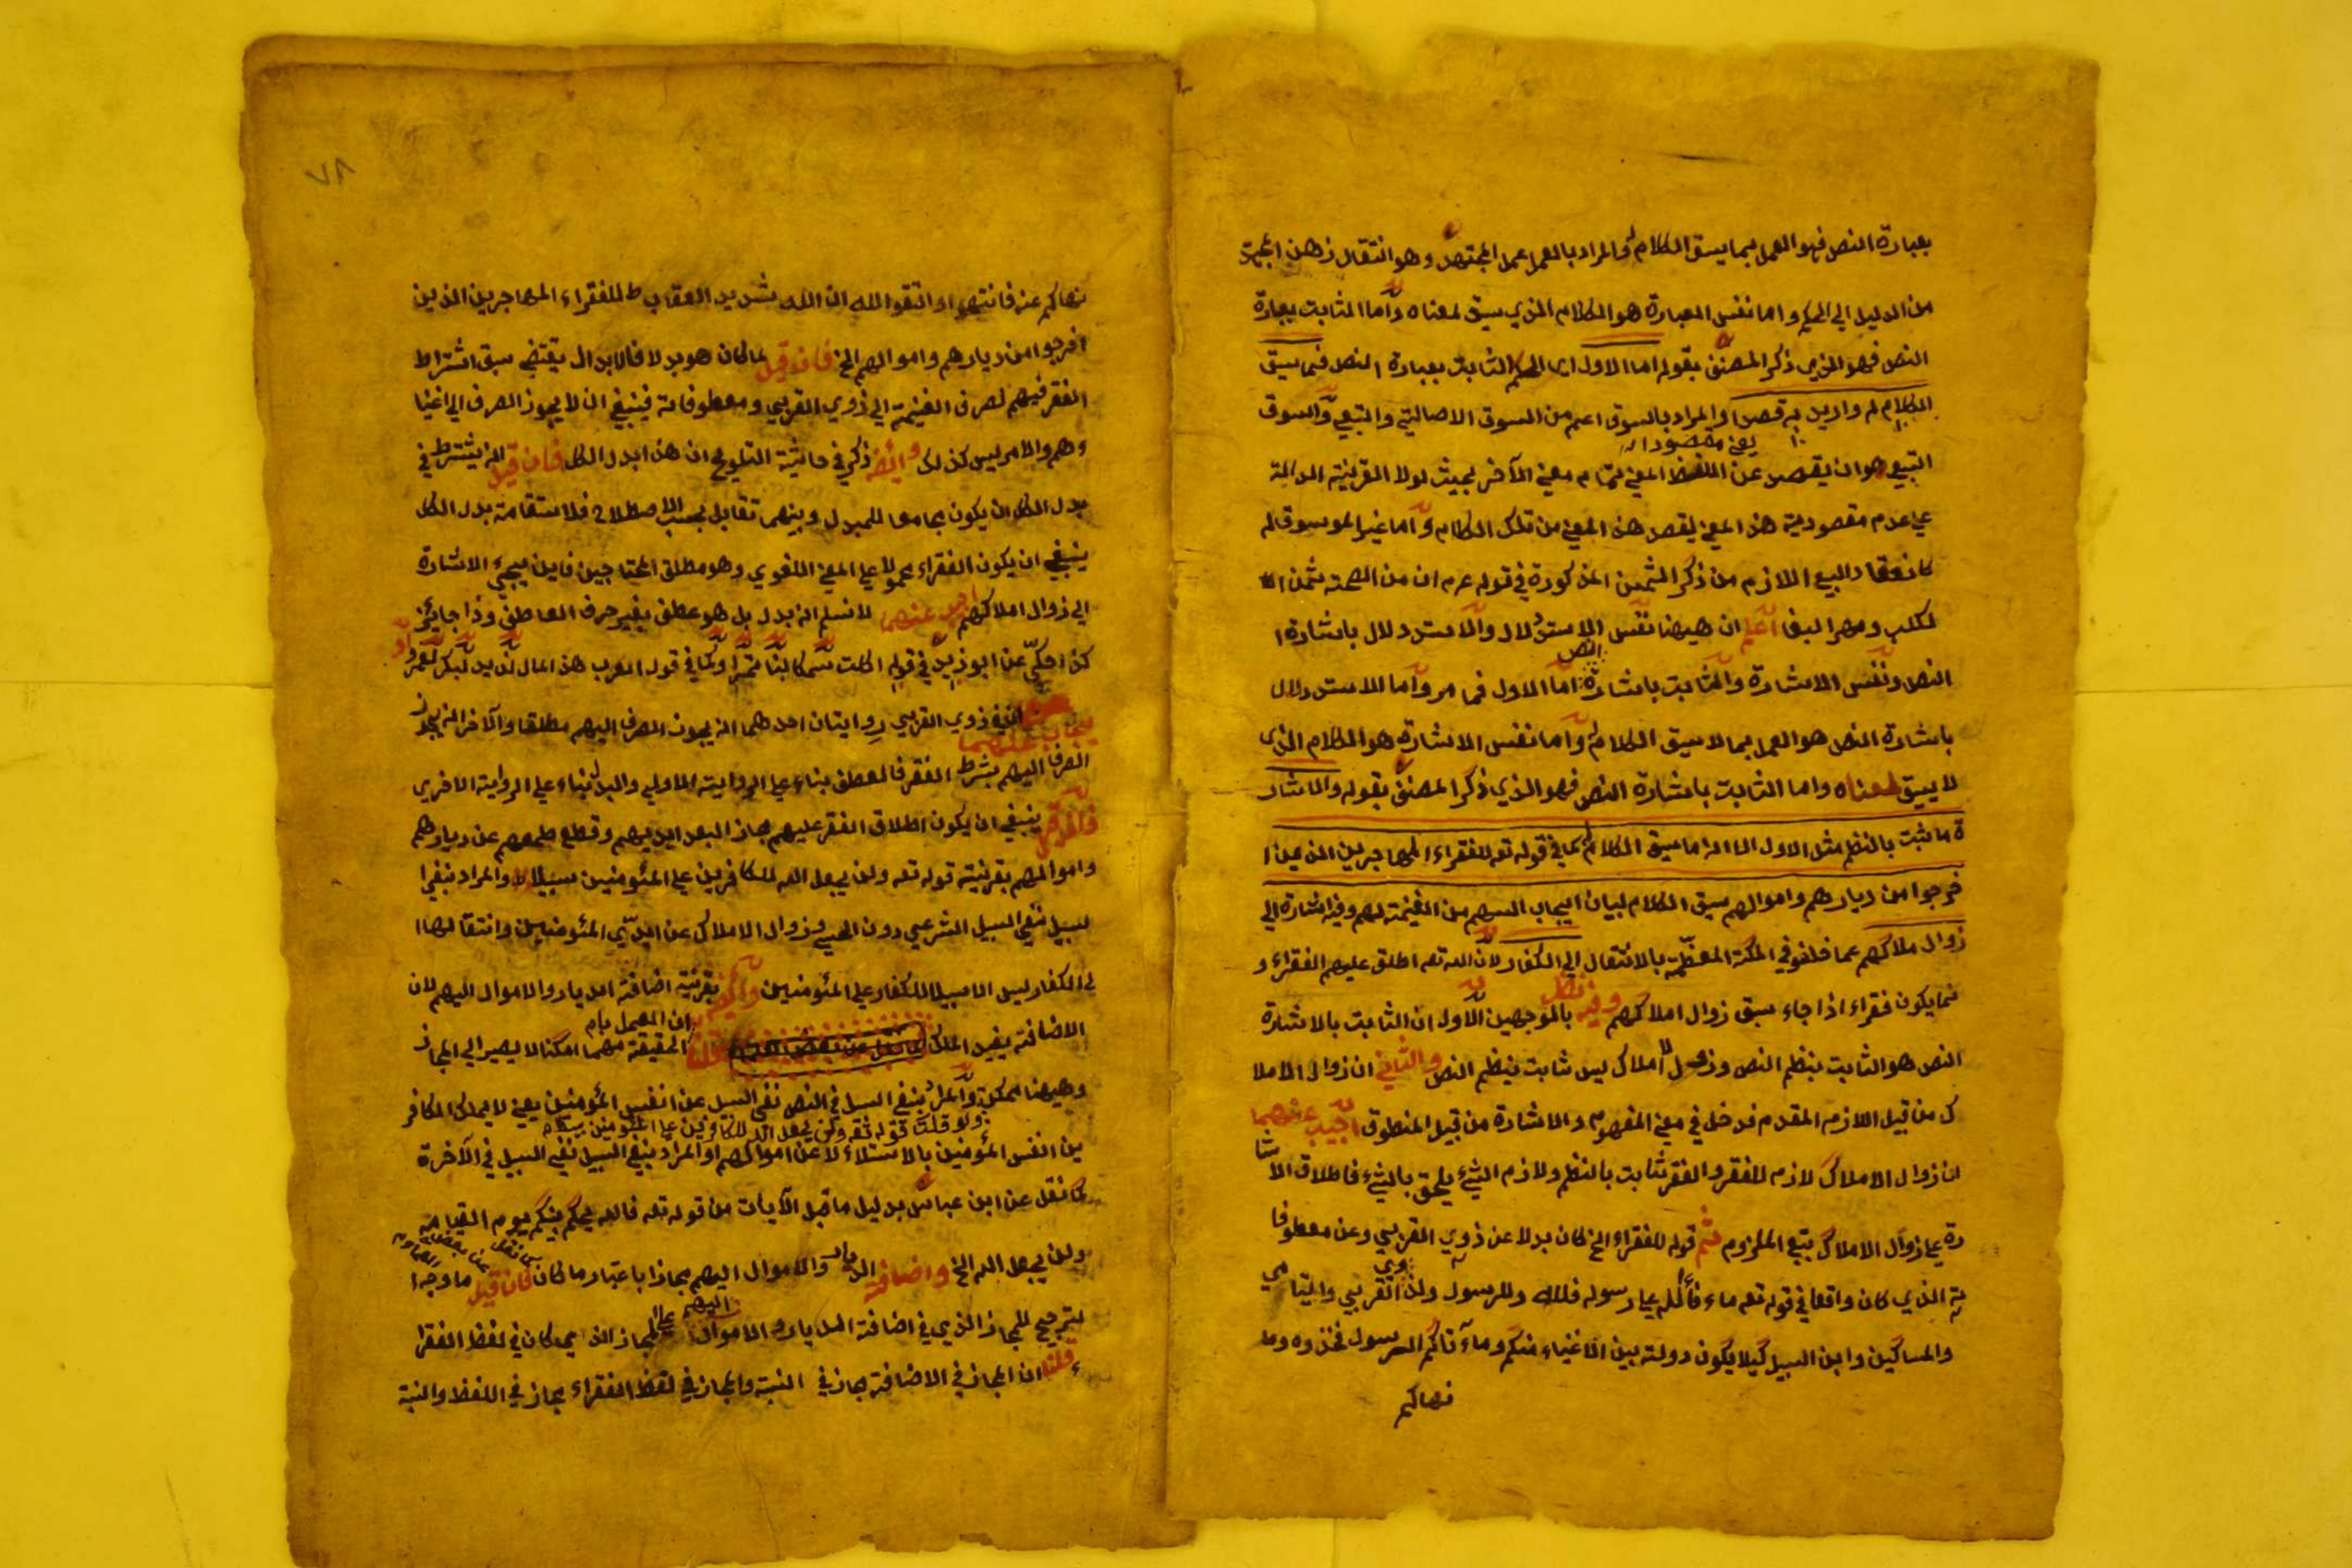 بعبارة النص فهو العمل بما يسق الكلام له والمراد بالعمل عمل المجتهد وهو انتقال ذهن المجتهد
من الدليل الي الحكم واما نفس العبارة هو الكلام الذي سيق لمعناه واما الثابت بعبارة
النص فهو الذي ذكر المصنف بقوله اما الاول اي الحكم الثابت بعبارة النص فما سيق
الكلام له واريد به قصدا والمراد بالسوق اعم من السوق الاصالتي والتبعي والسوق
يعني مقصودا له
التبعي هو ان يقصد عن اللفظ المعني لتمام معني الآخر بحيث لولا القرينة الدالة
علي عدم مقصودية هذا المعني لقصد هذا المعني من تلك الكلام واما غير الموسوق له
كانعقاد البيع اللازم من ذكر الثمن المذكورة في قوله عم ان من السحة ثمن ا
لكلب ومهر البغا اعلم ان هيهنا نفس الاستدلال والاستدلال باشارة ا
النص
النص ونفس الاشارة والثابت باشارة اما الاول فما مر واما الاستدلال
باشارة النص هو العمل بما لا سيق الكلام له واما نفس الاشارة هو الكلام الذي
لا يسيق لمعناه واما الثابت باشارة النص فهو الذي ذكر المصنف بقوله والاشار
ة ما ثبت بالنظم مثل الاول الا انه ما سيق الكلام له كما في قوله تعه للفقراء المهاجرين الذين ا
خرجوا من ديارهم واموالهم سيق الكلام لبيان ايجاب السهم من الغنيمة لهم وفيه اشارة الي
زوال ملاكهم عما خلفو في المكة المعظمة بالانتقال الي الكفار لان الله تعه اطلق عليهم الفقراء و
نما يكون فقراء اذا جاء سبق زوال املاكهم وفيه نظر بالموجهين الاول ان الثابت بالاشارة
النص هو الثابت بنظم النص وزوال املاك ليس ثابت بنظم النص والثاني ان زوال الاملا
ك من قبيل اللازم المقدم فدخل في معني المفهوم والاشارة من قبيل المنطوق اجيب عنهما
ان زوال الاملاك لازم للفقر والفقر ثابت بالنظم ولازم الشيء يلحق بالشيء فاطلاق الاشا
رة علي زوال الاملاك بتبع الملزوم ثم قوله للفقراء الخ كان بدلا عن ذوي القربي وعن معطوفا
ته الذي كان واقعا في قوله تعه ماء فاء الله علي رسوله فلله وللرسول ولذوي القربي واليتامي
والمساكين وابن السبيل كيلا يكون دولة بين الاغنياء منكم وما آتاكم الرسول فخذوه وما
نهاكم
٧٨
نهاكم عنه فانتهوا واتقوا الله ان الله شديد العقاب ط للفقراء المهاجرين الذين
اخرجوا من ديارهم واموالهم الخ فان قيل لما كان هو بدلا فالابدال يقتضي سبق اشتراط
الفقر فيهم لصرف الغنيمة الي ذوي القربي ومعطوفاته فينبغي ان لا يجوز الصرف الي اغنيا
ءهم والامر ليس كذلك وايضا ذكر في حاشية التلويح ان هذا بدل الكل فان قيل انه يشترط في
بدل الكل ان يكون مجامعا للمبدل وبينهما تقابل بحسب الاصطلاح فلاستقامة بدل الكل
ينبغي ان يكون الفقراء محمولا علي المعني اللغوي وهو مطلق المحتاجين فاين يجيء الاشارة
الي زوال املاكهم اجيب عنهما لا نسلم انه بدل بل هو عطف بغير حرف العاطف وذا جائز
كذا حكي عن ابو زيد في قوله اكلت سمكا لبنا تمرا وكما في قول العرب هذا المال لزيد لبكر لعمرو او
يجاب عنهما ان في ذوي القربي روايتان احدهما انه يجوز الصرف اليهم مطلقا والآخر انه يجوز
الصرف اليهم بشرط الفقر فالعطف بناء علي الرواية الاولي والبدل بناء علي الرواية الاخري
ينبغي ان يكون اطلاق الفقر عليهم مجاز البعد ايديهم وقطع طمعهم عن ديارهم
واموالهم بقرينة قوله تعه ولن يجعل الله للكافرين علي المؤمنين سبيلا والمراد بنفي ا
لسبيل نفي السبيل الشرعي دون الحسي وزوال الاملاك عن ايدي المؤمنين وانتقالها ا
لي الكفار ليس الا سبيلا للكفار علي المؤمنين بقرينة اضافة الديار والاموال اليهم لان
الاضافة يفيد الملك قلنا ان العمل بام الحقيقة مهما امكن لا يصير الي المجاز
وهيهنا ممكن والمراد بنفي السبيل في النص نفي السبيل عن انفس المؤمنين يعني لا يملك الكافر
ولو قلت قوله تعه ولن يجعل الله للكافرين علي المؤمنين سبيلا
ين انفس المؤمنين بالاستلاء لا عن اموالهم او المراد بنفي السبيل نفي السبيل في الآخرة
كما نقل عن ابن عباس بدليل ما قبل الآيات من قوله تعه فالله يحكم بينكم يوم القيامة
ولن يجعل الله الخ واضافة الديار والاموال اليهم مجازا باعتبار ما كان فان قيل ما وجه ا
لترجيح للمجاز الذي في اضافة الديار والاموال اليهم علي المجاز الذي كان في لفظ الفقرا
ء قلنا ان المجاز في الاضافة مجاز في النسبة والمجاز في لفظ الفقراء مجاز في اللفظ والنسبة